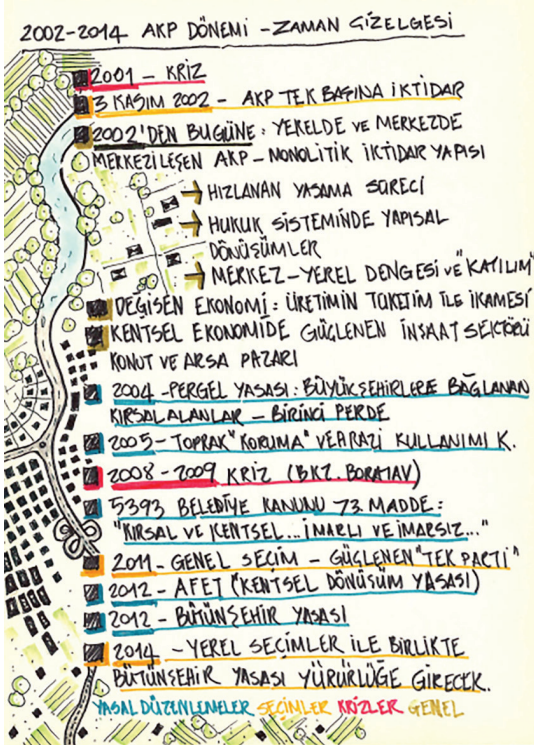 2002-2014 AKP DÖNEMİ - ZAMAN ÇİZELGESİ
2001 - KRİZ
3 KASIM 2002 - AKP TEK BAŞINA İKTİDAR
2002'DEN BUGÜNE: YERELDE VE MERKEZDE
MERKEZİLEŞEN AKP - MONOLİTİK İKTİDAR YAPISI
→ HIZLANAN YASAMA SÜRECİ
→ HUKUK SİSTEMİNDE YAPISAL
DÖNÜŞÜMLER
→ MERKEZ-YEREL DENGESİ ve "KATILIM"
DEĞİŞEN EKONOMİ: ÜRETİMİN TÜKETİM İLE İKAMESİ
KENTSEL EKONOMİDE GÜÇLENEN İNŞAAT SEKTÖRÜ
KONUT VE ARSA PAZARI
2004 - PERGEL YASASI: BÜYÜKŞEHİRLERE BAĞLANAN
KIRSAL ALANLAR - BİRİNCİ PERDE
2005 - TOPRAK "KORUMA" VE ARAZİ KULLANIMI K.
2008 - 2009 KRİZ (BKZ. BORATAV)
5393 BELEDİYE KANUNU 73. MADDE:
"KIRSAL VE KENTSEL... İMARLI VE İMARSIZ..."
2011 - GENEL SEÇİM - GÜÇLENEN "TEK PARTİ"
2012 - AFET (KENTSEL DÖNÜŞÜM YASASI)
2012 - BÜTÜNŞEHİR YASASI
2014 - YEREL SEÇİMLER İLE BİRLİKTE
BÜTÜNŞEHİR YASASI YÜRÜRLÜĞE GİRECEK.
YASAL DÜZENLEMELER SEÇİMLER KRİZLER GENEL